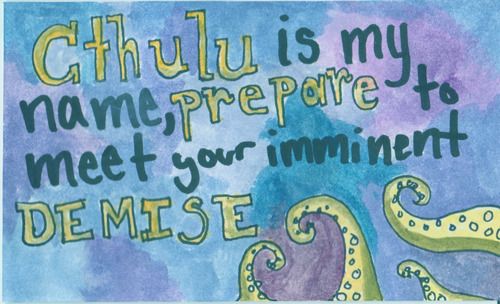 Cthulu is my
name, prepare to
meet your imminent
DEMISE